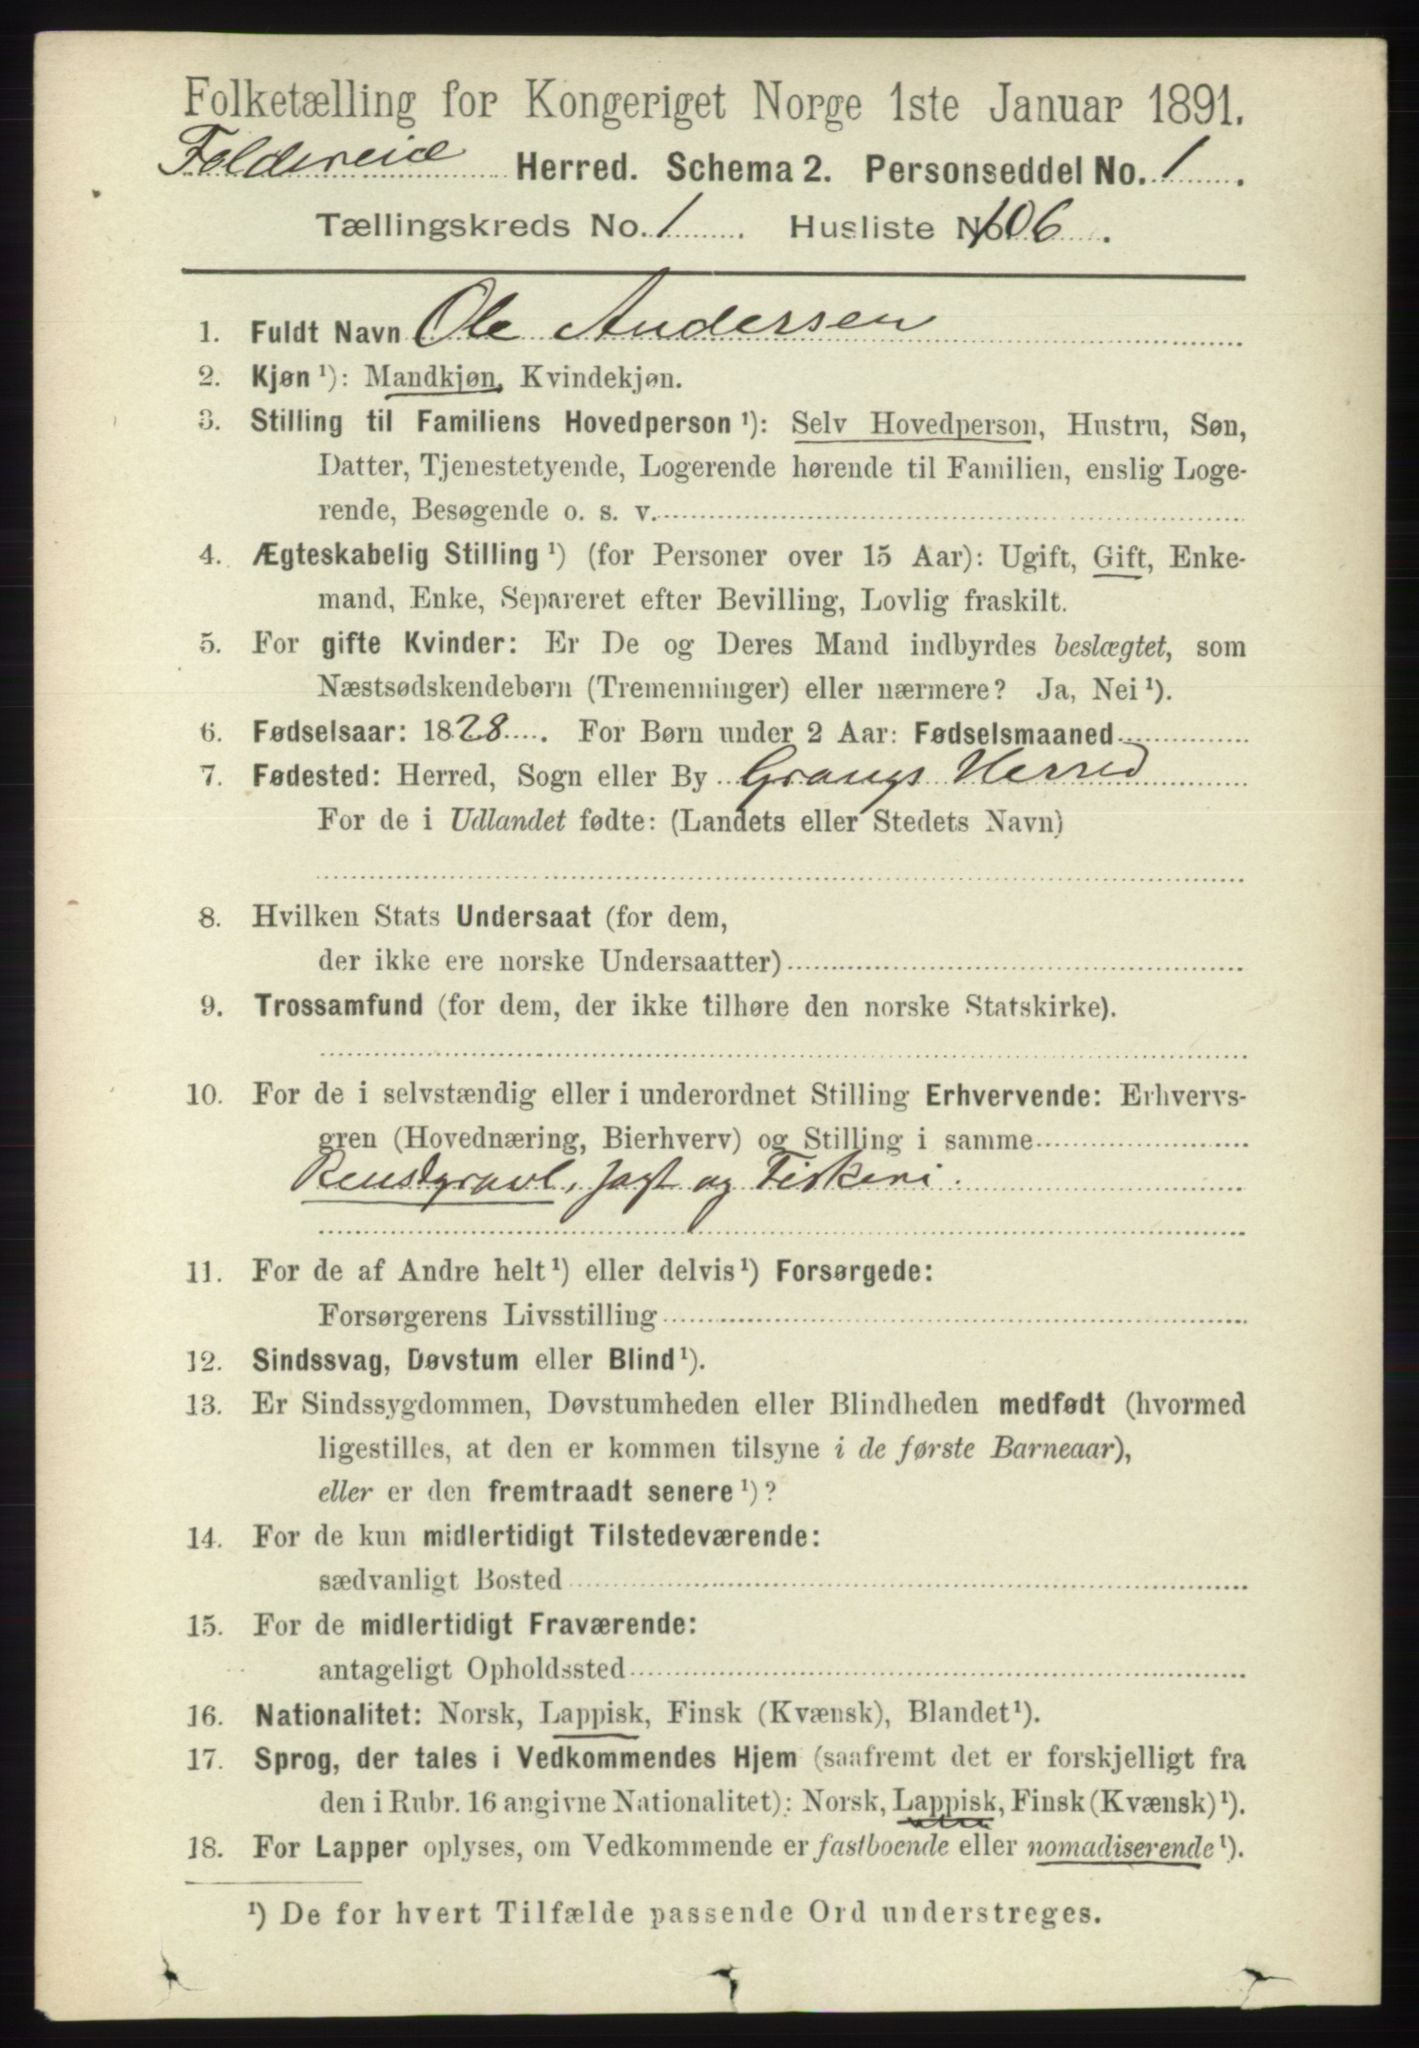 Folketælling for Kongeriget Norge 1ste Januar 1891.
Foldereid Herred. Schema 2. Personseddel No. 1.
Tællingskreds No. 1. Husliste No. 106.
1. Fuldt Navn Ole Andersen
2. Kjøn ¹): Mandkjøn, Kvindekjøn.
3. Stilling til Familiens Hovedperson ¹): Selv Hovedperson, Hustru, Søn,
Datter, Tjenestetyende, Logerende hørende til Familien, enslig Loge-
rende, Besøgende o. s. v.
4. Ægteskabelig Stilling ¹) (for Personer over 15 Aar): Ugift, Gift, Enke-
mand, Enke, Separeret efter Bevilling, Lovlig fraskilt.
5. For gifte Kvinder: Er De og Deres Mand indbyrdes beslægtet, som
Næstsødskendebørn (Tremenninger) eller nærmere? Ja, Nei ¹).
6. Fødselsaar: 1828. For Børn under 2 Aar: Fødselsmaaned
7. Fødested: Herred, Sogn eller By Grangs Herred
For de i Udlandet fødte: (Landets eller Stedets Navn)
8. Hvilken Stats Undersaat (for dem,
der ikke ere norske Undersaatter)
9. Trossamfund (for dem, der ikke tilhøre den norske Statskirke).
10. For de i selvstændig eller i underordnet Stilling Erhvervende: Erhvervs-
gren (Hovednæring, Bierhverv) og Stilling i samme
Rensdyravl, Jagt og Fiskeri.
11. For de af Andre helt ¹) eller delvis ¹) Forsørgede:
Forsørgerens Livsstilling
12. Sindssvag, Døvstum eller Blind ¹).
13. Er Sindssygdommen, Døvstumheden eller Blindheden medfødt (hvormed
ligestilles, at den er kommen tilsyne i de første Barneaar),
eller er den fremtraadt senere ¹)?
14. For de kun midlertidigt Tilstedeværende:
sædvanligt Bosted
15. For de midlertidigt Fraværende:
antageligt Opholdssted
16. Nationalitet: Norsk, Lappisk, Finsk (Kvænsk), Blandet ¹).
17. Sprog, der tales i Vedkommendes Hjem (saafremt det er forskjelligt fra
den i Rubr. 16 angivne Nationalitet): Norsk, Lappisk, Finsk (Kvænsk) ¹).
18. For Lapper oplyses, om Vedkommende er fastboende eller nomadiserende ¹).
¹) De for hvert Tilfælde passende Ord understreges.